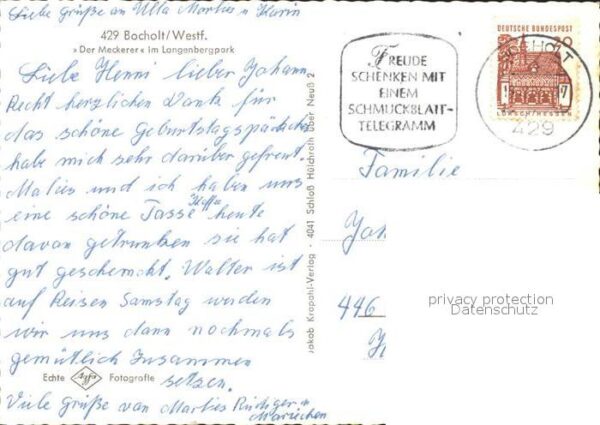 Liebe Grüße an Ulla Marlies u Karin
429 Bocholt/Westf.
»Der Meckerer« im Langenbergpark
Liebe Henni lieber Johann
Recht herzlichen Dank für
das schöne Geburtstagspäckchen
habe mich sehr darüber gefreut.
Malies und ich haben uns
eine schöne Tasse Kaffee heute
davon getrunken sie hat
gut geschmeckt. Walter ist
auf Reisen Samstag wurden
wir uns dann nochmals
gemütlich Zusammen
setzen.
Echte Agfa Fotografie
Viele Grüße van Marlies Rüdiger u
Mariechen
Jakob Krapohl-Verlag · 4041 Schloß Hülchrath über Neuß 2
FREUDE
SCHENKEN MIT
EINEM
SCHMUCKBLATT-
TELEGRAMM
DEUTSCHE BUNDESPOST
20
LORSCH/HESSEN
BOCHOLT
429
Familie
Joh
446
privacy protection
Datenschutz